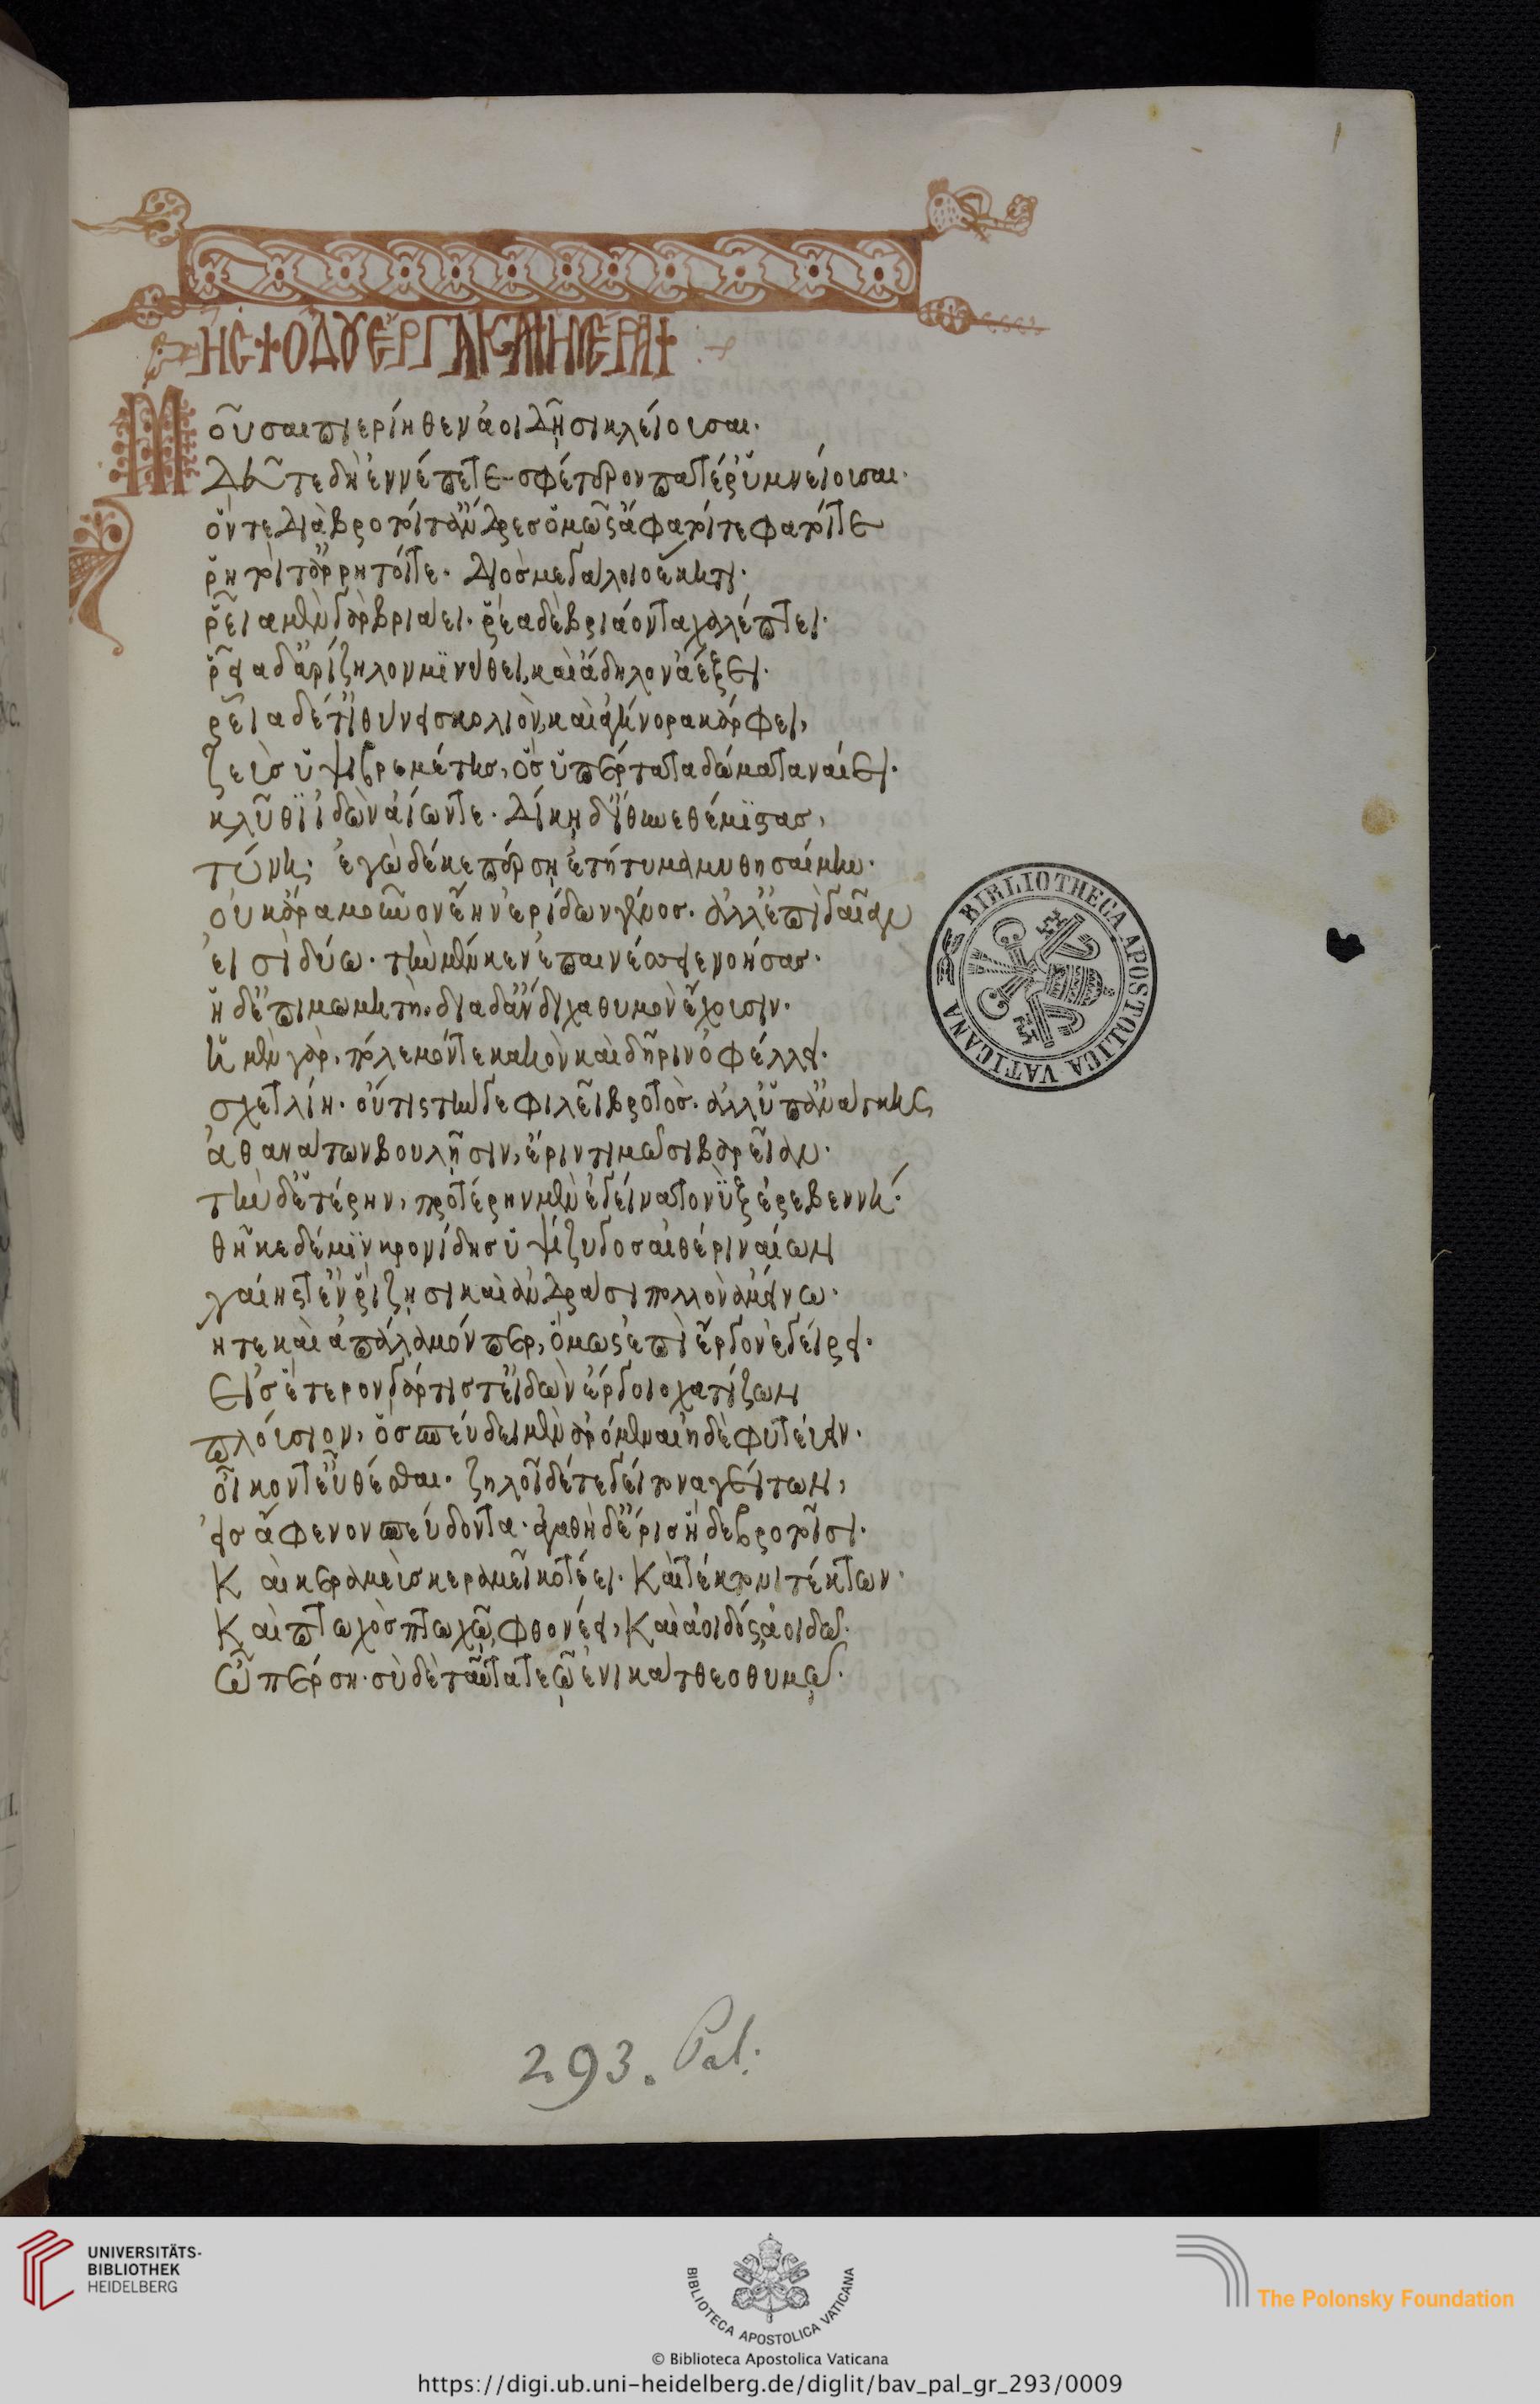 1
ΗΣΙΟΔΟΥ ΕΡΓΑ ΚΑΙ ΗΜΕΡΑΙ
Μοῦσαι πιερίηθεν ἀοιδῇσι κλείουσαι.
Δεῦτε δὴ ἐννέπετε σφέτερον πατέρ ὑμνείουσαι.
ὅντε διὰ βροτοὶ ἄνδρες ὁμῶς ἄφατοί τε φατοί τε
ῥητοί τ' ἄρρητοί τε. Διὸς μεγάλοιο ἕκητι.
ῥεῖα μὲν γὰρ βριάει. ῥέα δὲ βριάοντα χαλέπτει.
ῥεῖα δ' ἀρίζηλον μινύθει, καὶ ἄδηλον ἀέξει.
ῥεῖα δέ τ' ἰθύνει σκολιὸν, καὶ ἀγήνορα κάρφει,
ζεὺς ὑψιβρεμέτης, ὃς ὑπέρτατα δώματα ναίει.
κλῦθι ἰδὼν ἀΐων τε. Δίκῃ δ' ἴθυνε θέμιστας,
τύνη· ἐγὼ δέ κε πέρσῃ ἐτήτυμα μυθησαίμην.
οὐκ ἄρα μοῦνον ἔην ἐρίδων γένος. ἀλλ' ἐπὶ γαῖαν
εἰσὶ δύω. τὴν μέν κεν ἐπαινέσειε νοήσας.
ἡ δ' ἐπιμωμητή. διὰ δ' ἄνδιχα θυμὸν ἔχουσιν.
ἡ μὲν γὰρ, πόλεμόν τε κακὸν καὶ δῆριν ὀφέλλει.
σχετλίη. οὔτις τήν γε φιλεῖ βροτὸς. ἀλλ' ὑπ' ἀνάγκης
ἀθανάτων βουλῇσιν, ἔριν τιμῶσι βαρεῖαν.
τὴν δ' ἑτέρην, προτέρην μὲν ἐγείνατο νὺξ ἐρεβεννή.
θῆκε δέ μιν κρονίδης ὑψίζυγος αἰθέρι ναίων
γαίης τ' ἐν ῥίζῃσι καὶ ἀνδράσι πολλὸν ἀμείνω.
ἥτε καὶ ἀπάλαμόν περ, ὅμως ἐπὶ ἔργον ἐγείρει.
Εἰς ἕτερον γάρ τίς τε ἰδὼν ἔργοιο χατίζων
πλούσιον, ὃς σπεύδει μὲν ἀρόμεναι ἠδὲ φυτεύειν.
οἶκόν τ' εὖ θέσθαι. ζηλοῖ δέ τε γείτονα γείτων,
εἰς ἄφενον σπεύδοντα. ἀγαθὴ δ' ἔρις ἥδε βροτοῖσι.
Καὶ κεραμεὺς κεραμεῖ κοτέει. Καὶ τέκτονι τέκτων.
Καὶ πτωχὸς πτωχῷ φθονέει, Καὶ ἀοιδὸς ἀοιδῷ.
Ὦ πέρση. σὺ δὲ ταῦτα τεῷ ἐνικάτθεο θυμῷ.
BIBLIOTHECA APOSTOLICA VATICANA
293. Pal.
UNIVERSITÄTS-
BIBLIOTHEK
HEIDELBERG
BIBLIOTECA APOSTOLICA VATICANA
The Polonsky Foundation
© Biblioteca Apostolica Vaticana
https://digi.ub.uni-heidelberg.de/diglit/bav_pal_gr_293/0009